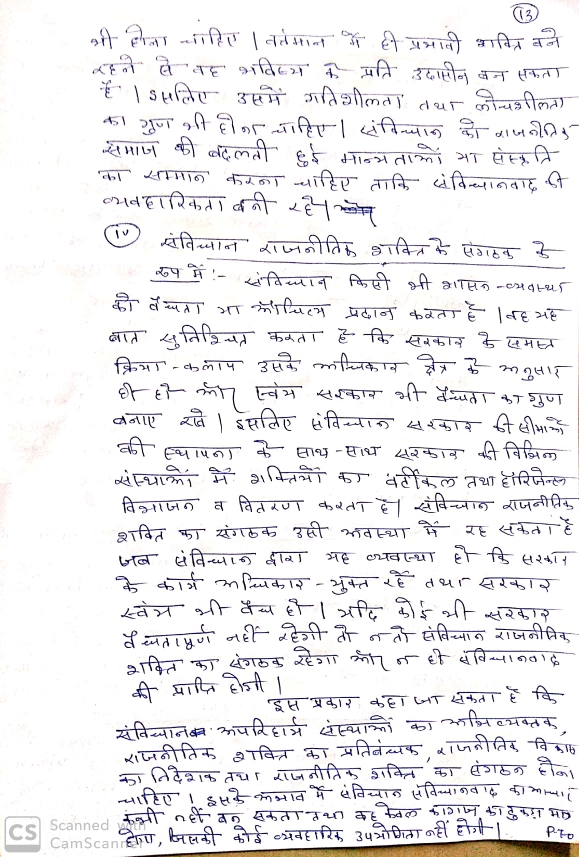 13
भी होना चाहिए | वर्तमान में ही प्रभावी शक्ति बने
रहने से वह भविष्य के प्रति उदासीन बन सकता
है | इसलिए उसमें गतिशीलता तथा लोचशीलता
का गुण भी होना चाहिए | संविधान को राजनीतिक
समाज की बदलती हुई मान्यताओं या संस्कृति
का सम्मान करना चाहिए ताकि संविधानवाद की
व्यवहारिकता बनी रहे |
iv संविधान राजनीतिक शक्ति के संगठक के
रूप में :- संविधान किसी भी शासन-व्यवस्था
को वैधता या औचित्य प्रदान करता है | वह यह
बात सुनिश्चित करता है कि सरकार के समस्त
क्रिया-कलाप उसके अधिकार क्षेत्र के अनुसार
ही हो और स्वंय सरकार भी वैधता का गुण
बनाए रखे | इसलिए संविधान सरकार की सीमाओं
की स्थापना के साथ-साथ सरकार की विभिन्न
संस्थाओं में शक्तियों का वर्टीकल तथा होरिजेन्टल
विभाजन व वितरण करता है | संविधान राजनीतिक
शक्ति का संगठक उसी अवस्था में रह सकता है
जब संविधान द्वारा यह व्यवस्था हो कि सरकार
के कार्य अधिकार-युक्त रहें तथा सरकार
स्वंय भी वैध हो | यदि कोई भी सरकार
वैधतापूर्ण नहीं रहेगी तो न तो संविधान राजनीतिक
शक्ति का संगठक रहेगा और न ही संविधानवाद
की प्राप्ति होगी |
इस प्रकार कहा जा सकता है कि
संविधान अपरिहार्य संस्थाओं का अभिव्यक्तक,
राजनीतिक शक्ति का प्रतिबंधक, राजनीतिक विकास
का निदेशक तथा राजनीतिक शक्ति का संगठक होना
चाहिए | इसके अभाव में संविधान संविधानवाद का आधार
कभी नहीं बन सकता तथा वह केवल कागज का टुकड़ा मात्र
होगा, जिसकी कोई व्यवहारिक उपयोगिता नहीं होगी | P.T.O
CS Scanned with
CamScanner